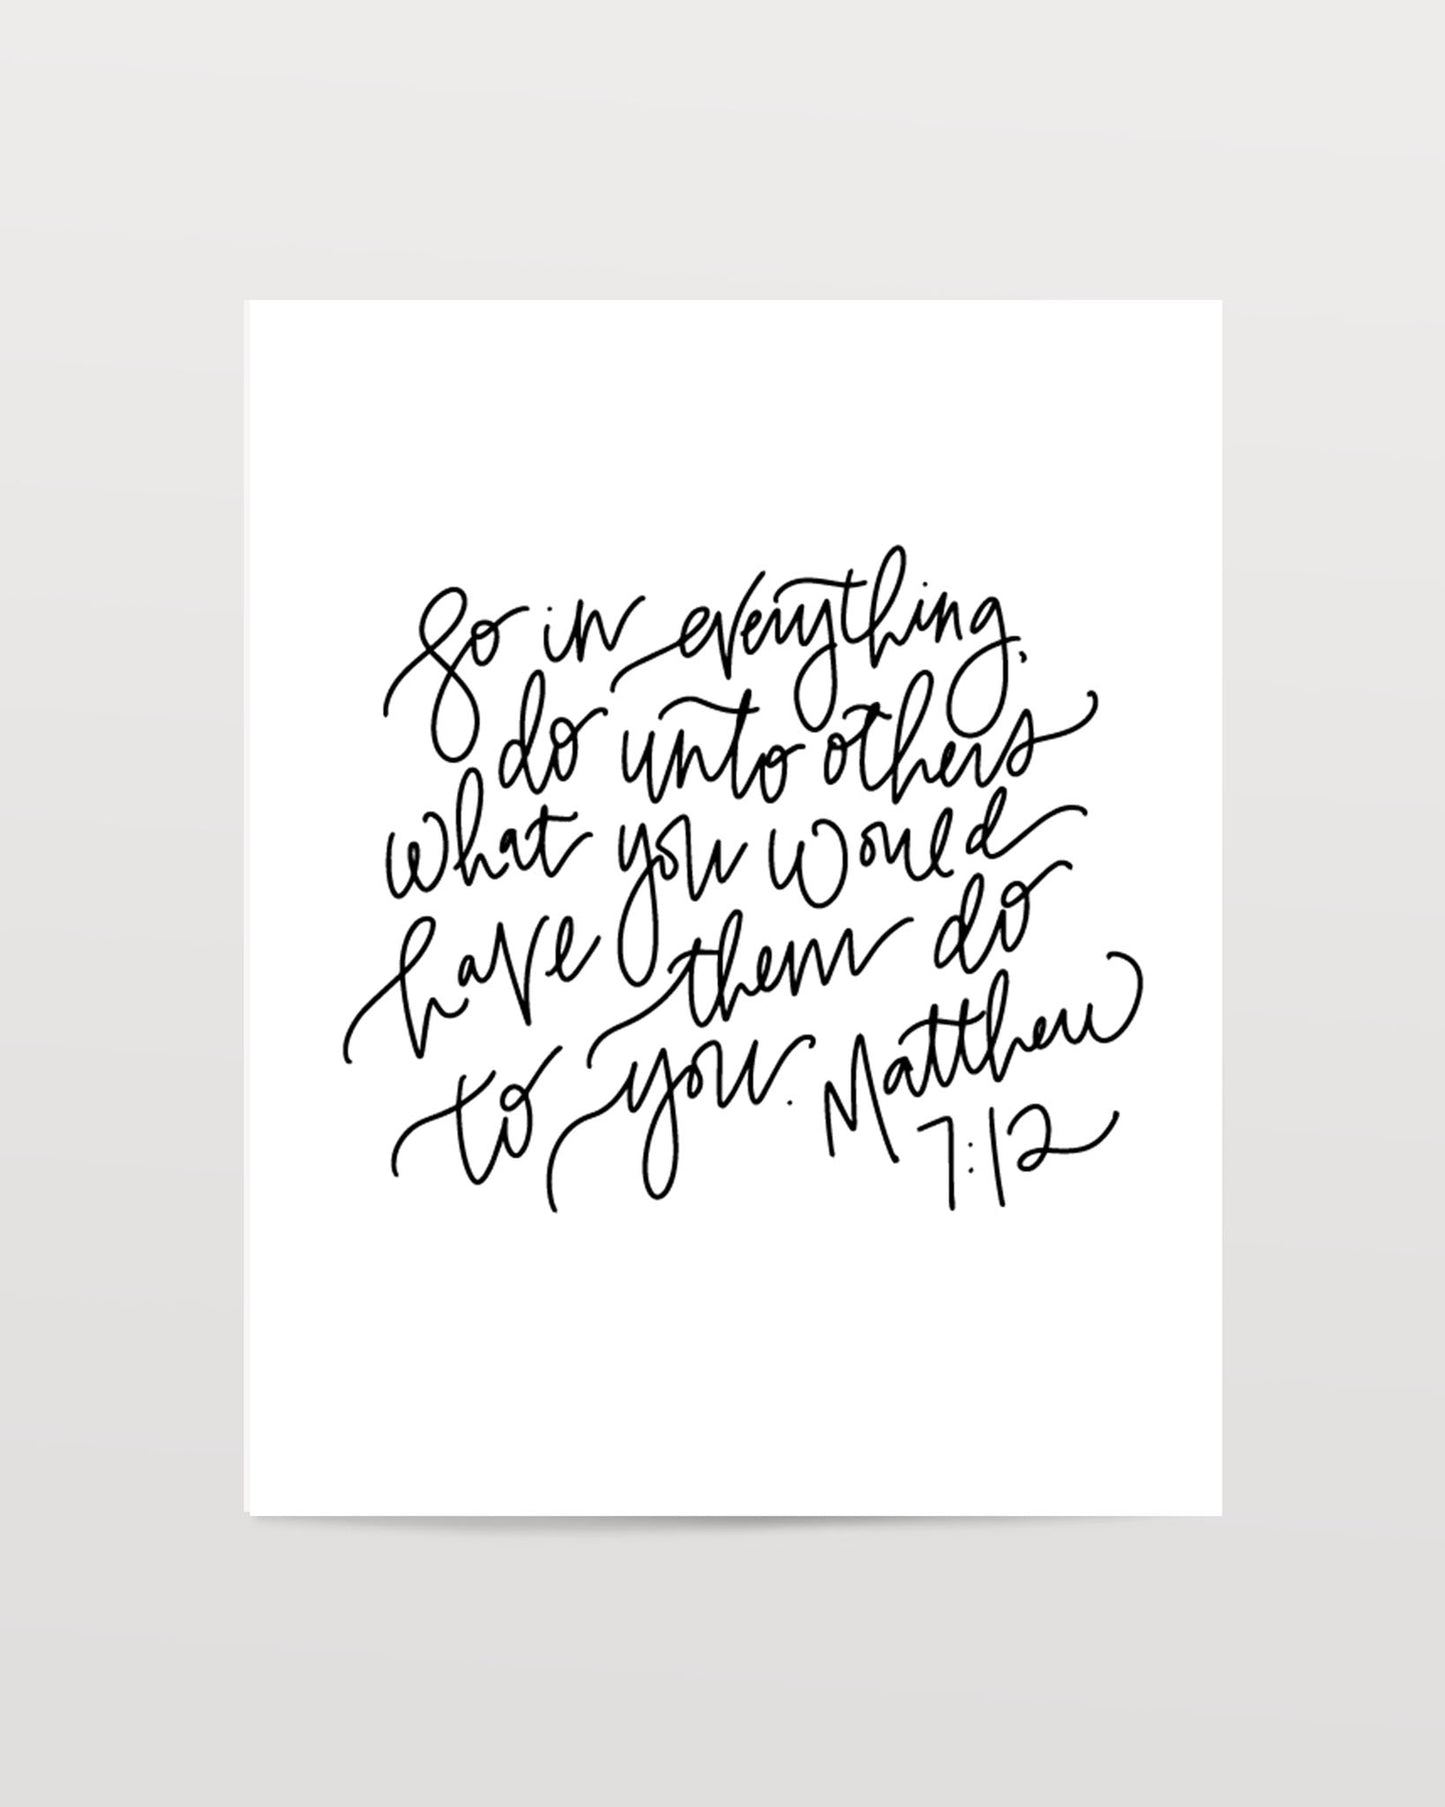 So in everything,
do unto others
what you would
have them do
to you. Matthew
7:12